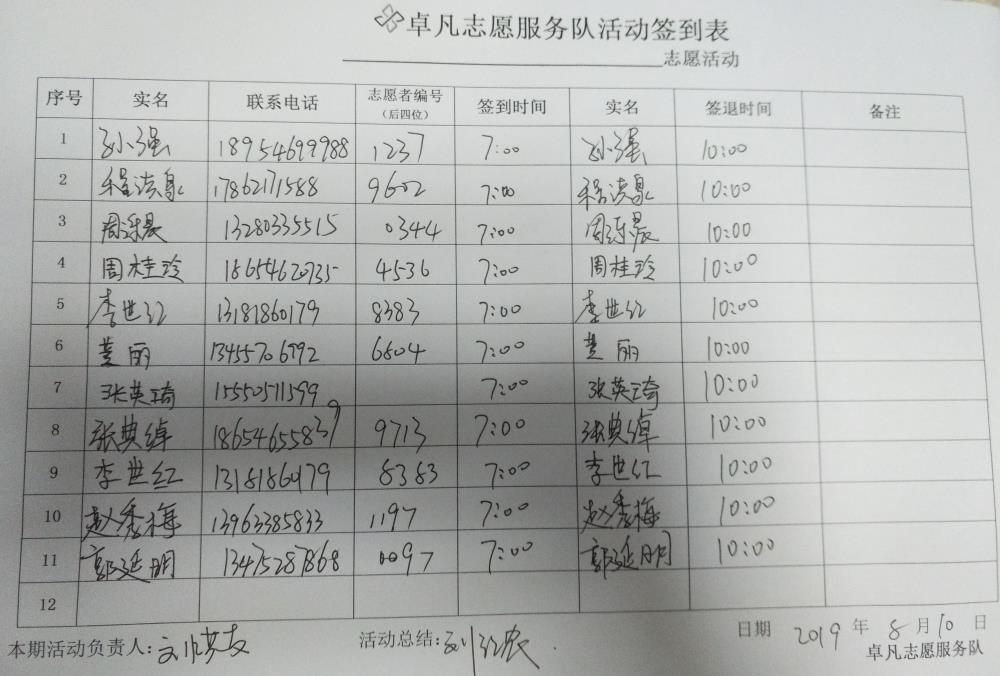 卓凡志愿服务队活动签到表
志愿活动
序号 实名 联系电话 志愿者编号（后四位） 签到时间 实名 签退时间 备注
1 孙强 18954699988 1237 7:00 孙强 10:00
2 17862171588 9602 7:00 10:00
3 13280335515 0344 7:00 10:00
4 周桂玲 18654620735 4536 7:00 周桂玲 10:00
5 李世红 13181860179 8383 7:00 李世红 10:00
6 丽 13455706792 6604 7:00 丽 10:00
7 张英琦 15550571599 7:00 张英琦 10:00
8 张典绰 18654655839 9713 7:00 张典绰 10:00
9 李世红 13181860179 8383 7:00 李世红 10:00
10 赵秀梅 13963385833 1197 7:00 赵秀梅 10:00
11 郭延明 13475287868 0097 7:00 郭延明 10:00
12
本期活动负责人: 活动总结: 日期 2019 年 8 月 10 日
卓凡志愿服务队